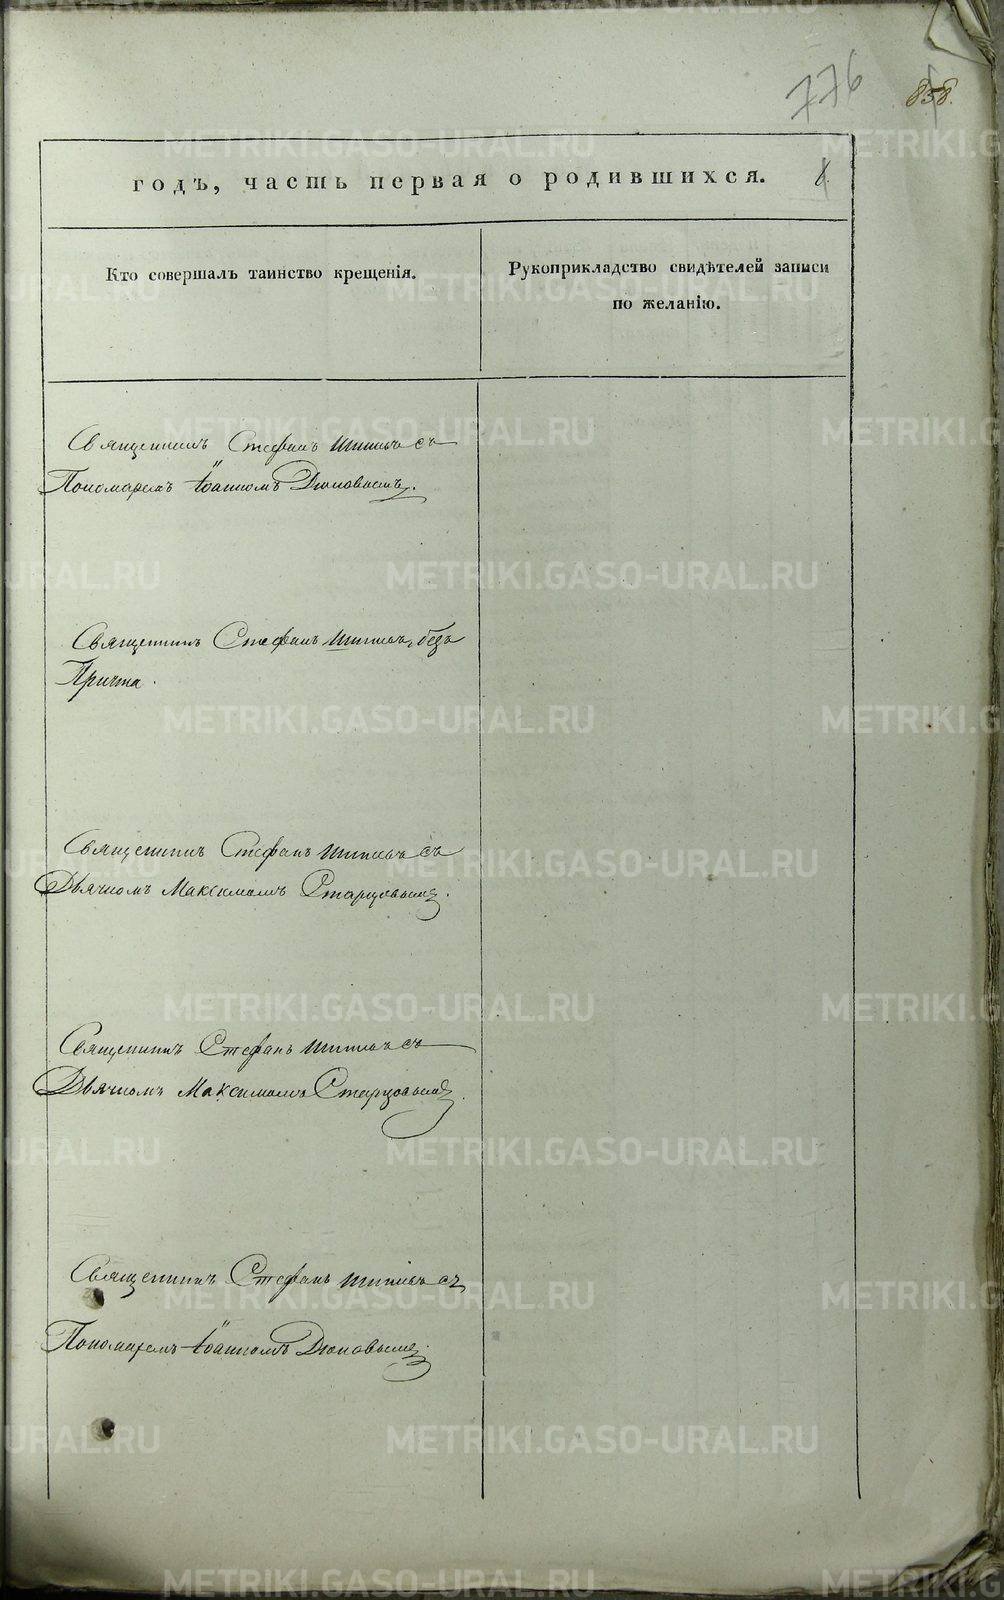 776
858.
годъ, часть первая о родившихся.
Кто совершалъ таинство крещенія.
Рукоприкладство свидѣтелей записи
по желанію.
Священникъ Стефанъ съ
Пономаремъ Іоанномъ
Священникъ Стефанъ безъ
Причта.
Священникъ Стефанъ съ
Дьячкомъ Максимомъ Старцовымъ.
Священникъ Стефанъ съ
Дьячкомъ Максимомъ Старцовымъ.
Священникъ Стефанъ съ
Пономаремъ Іоанномъ
METRIKI.GASO-URAL.RU